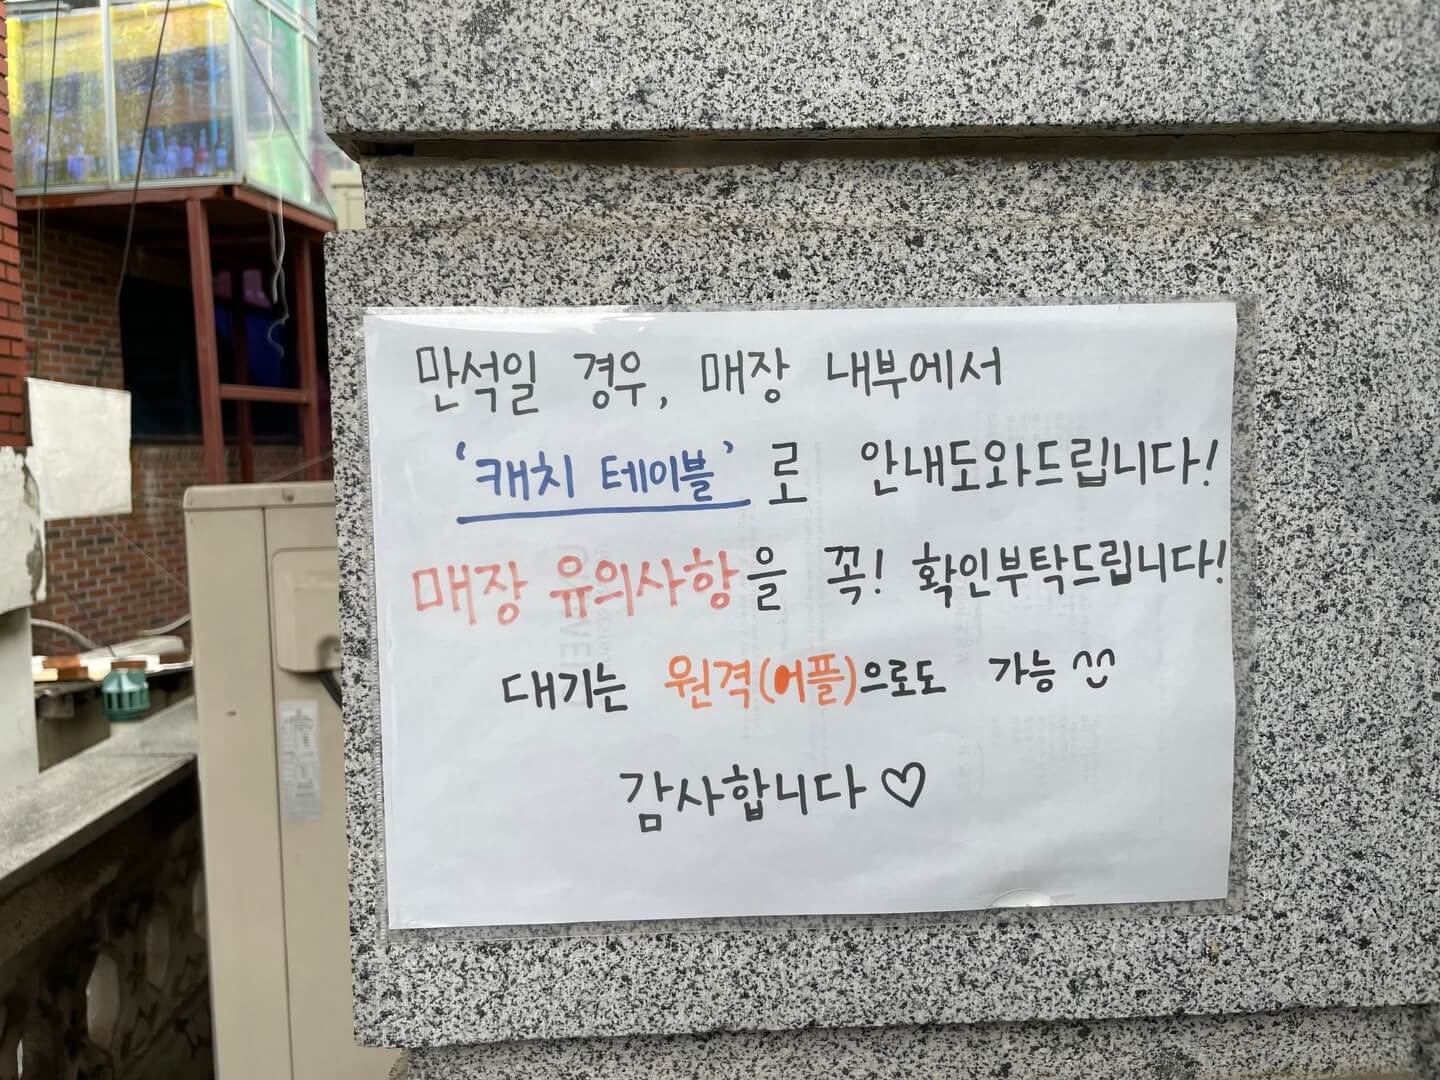 만석일 경우, 매장 내부에서
'캐치 테이블'로 안내도와드립니다!
매장 유의사항을 꼭! 확인부탁드립니다!
대기는 원격(어플)으로도 가능 ^^
감사합니다 ♡